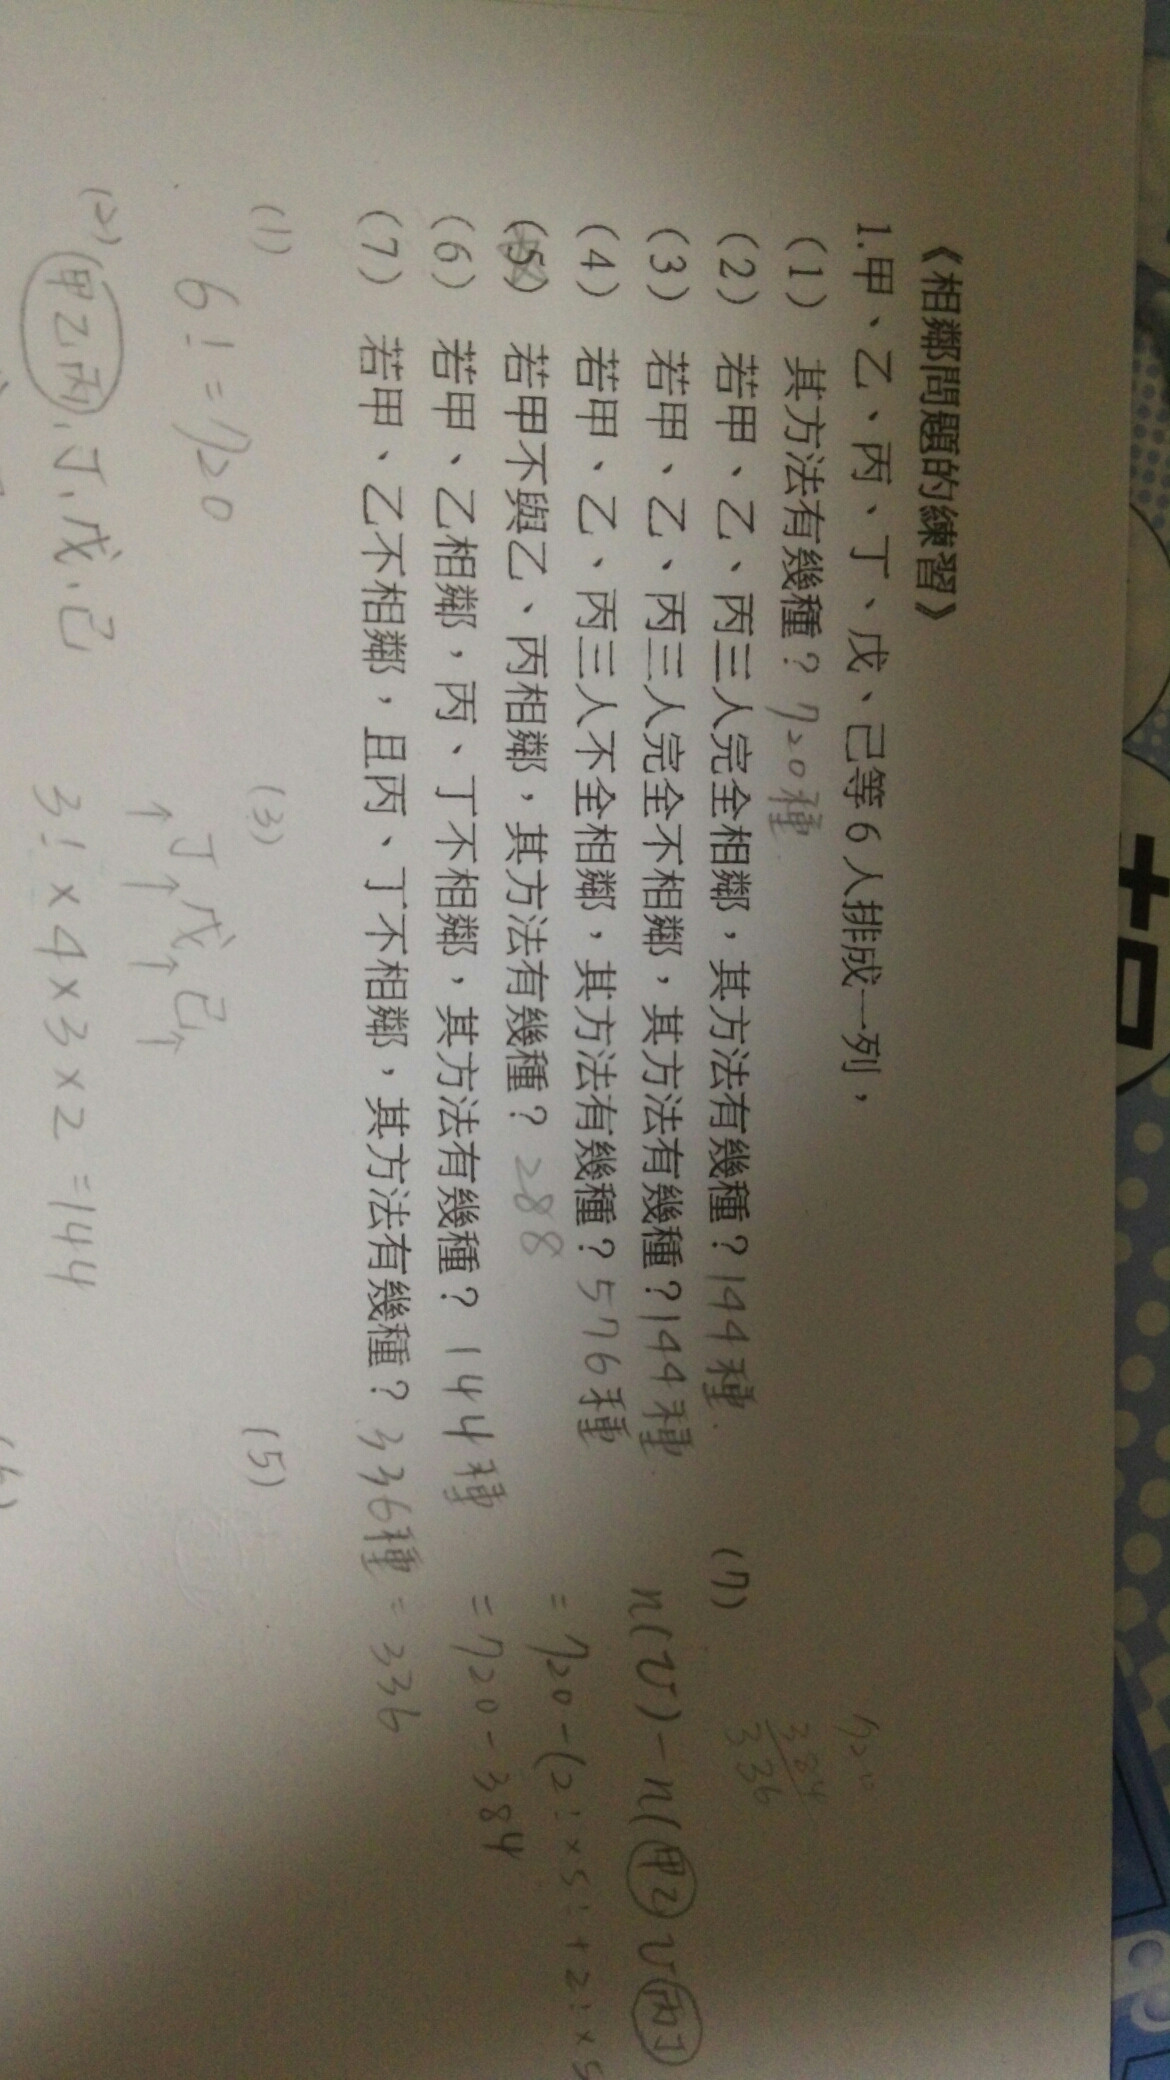 《相鄰問題的練習》
1.甲、乙、丙、丁、戊、己等6人排成一列，
(1) 其方法有幾種？720種
(2) 若甲、乙、丙三人完全相鄰，其方法有幾種？144種
(3) 若甲、乙、丙三人完全不相鄰，其方法有幾種？144種
(4) 若甲、乙、丙三人不全相鄰，其方法有幾種？576種
(5) 若甲不與乙、丙相鄰，其方法有幾種？288
(6) 若甲、乙相鄰，丙、丁不相鄰，其方法有幾種？144種
(7) 若甲、乙不相鄰，且丙、丁不相鄰，其方法有幾種？336種
(7)
720
384
336
n(U)-n(甲乙∪丙丁)
=720-(2!×5!+2!×5
=720-384
=336
(1)
6!=720
(2)
甲乙丙、丁、戊、己
(3)
↑丁↑戊↑己↑
3!×4×3×2=144
(5)